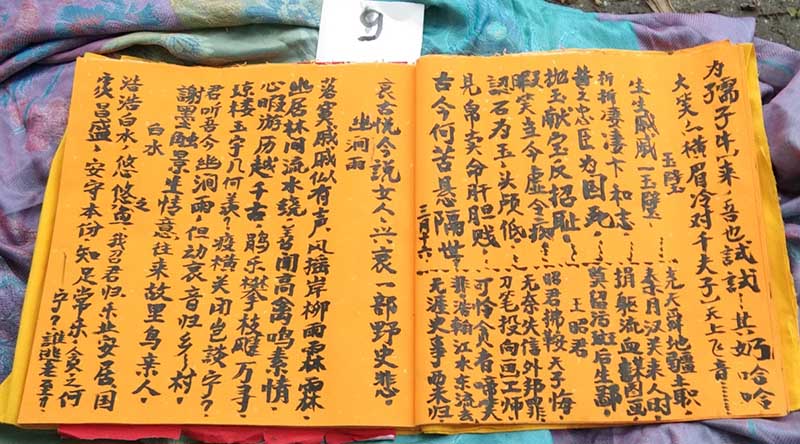 9
为孺子牛，来，吾也试试…其奶哈哈
大笑横眉冷对千夫子，天上飞音……
玉璧
生生戚戚一玉璧，
祈祈凄凄卞和志，
昔之忠臣为固死，
抛玉献宝反招耻，
暇寞当今虚令
认石为玉头颅低，
见帛卖命肝胆贱，
古今何苦悬隔世
三月十六
尧天舜地疆土取，
秦月汉关来人时
捐躯流血献图画
莫留污斑后生鄙
王昭君
昭君拂鞍天子悔
无奈失信外邦罪
刀笔投向画工师
可怜贪者啼失
悲浩翰江水东流去
无涯史事西来归
哀古悦今说女人，兴衰一部野史悲。
幽涧雨
落寞戚戚似有声，风摇岸柳雨霖霖
幽居林间流水绕，善闻高禽鸣素情
心暇游历越千古，鹃乐攀枝雕万事
琼楼玉宇几何羡？疫横关闭岂谈宁？
君听吾今幽涧雨，但动哀音归乡村。
谢墨融景生情意，往来故里鸟亲人。
白水
浩浩白水，悠悠之鱼，我召君归，乐业安居，国
家昌盛，安守本份，知足常乐，贪之何
宁？谁逃